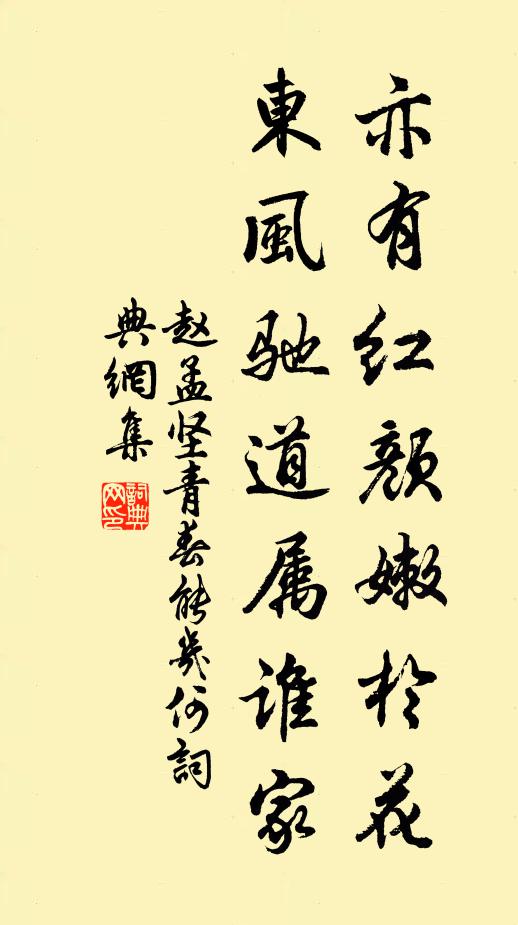 亦有红颜嫩於花
東風馳道属谁家
赵孟坚青春能幾何詞
典網集
詞典网印